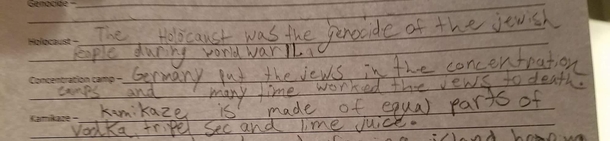 Genocide –
The Holocaust was the genocide of the jewish
Holocaust – People during world war II.
Germany put the jews in the concentration
Concentration camp – camps and many time worked the jews to death.
Kamikaze is made of equal parts of
Kamikaze – Vodka tripel sec and lime juice.
island hopping